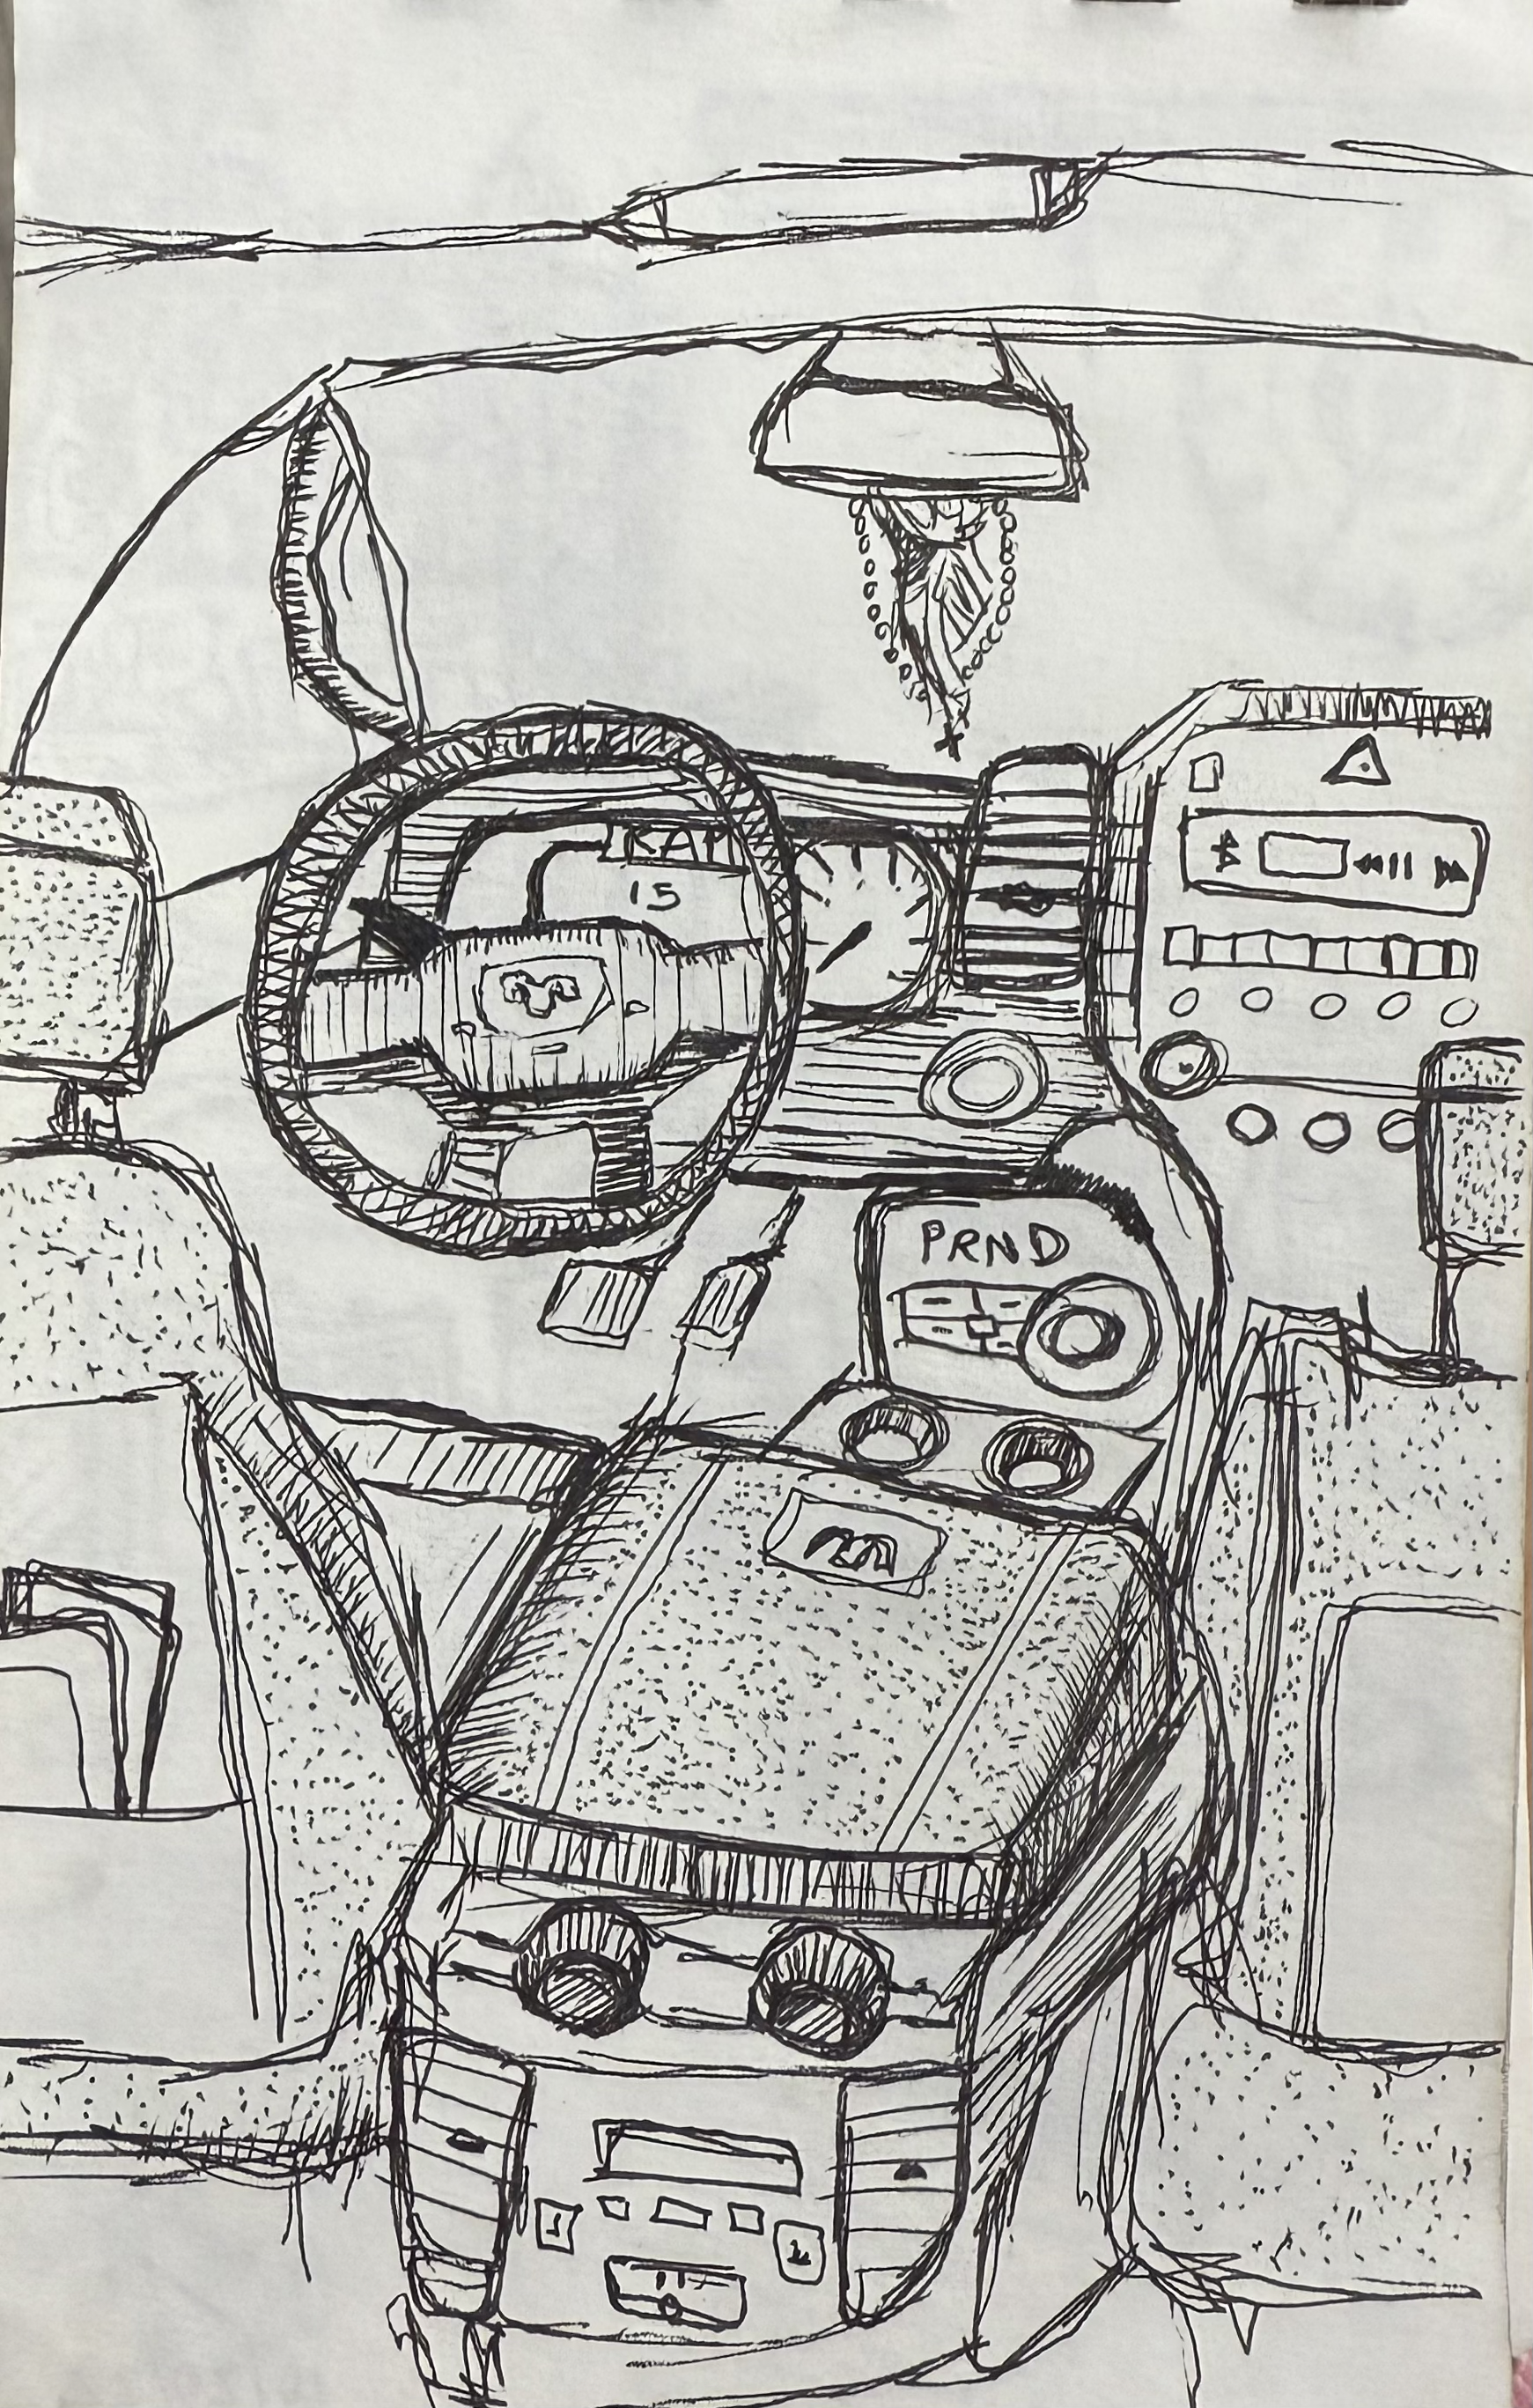 RAM
15
PRND